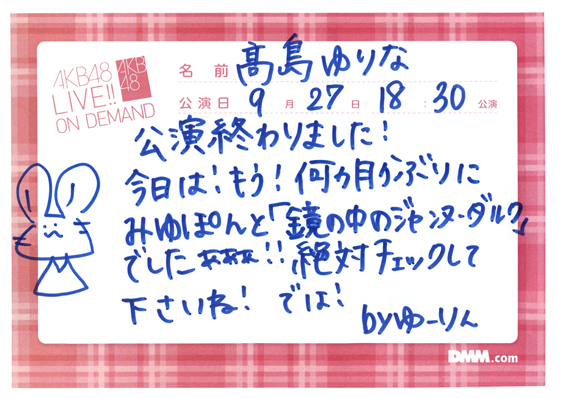 AKB48
LIVE!!
ON DEMAND
AKB
48
名前 髙島ゆりな
公演日 9月27日 18:30公演
公演終わりました!
今日は!もう!何ヵ月かぶりに
みゆぽんと「鏡の中のジャンヌ・ダルク」
でしたぁぁぁ!!絶対チェックして
下さいね! では!
byゆーりん
DMM.com